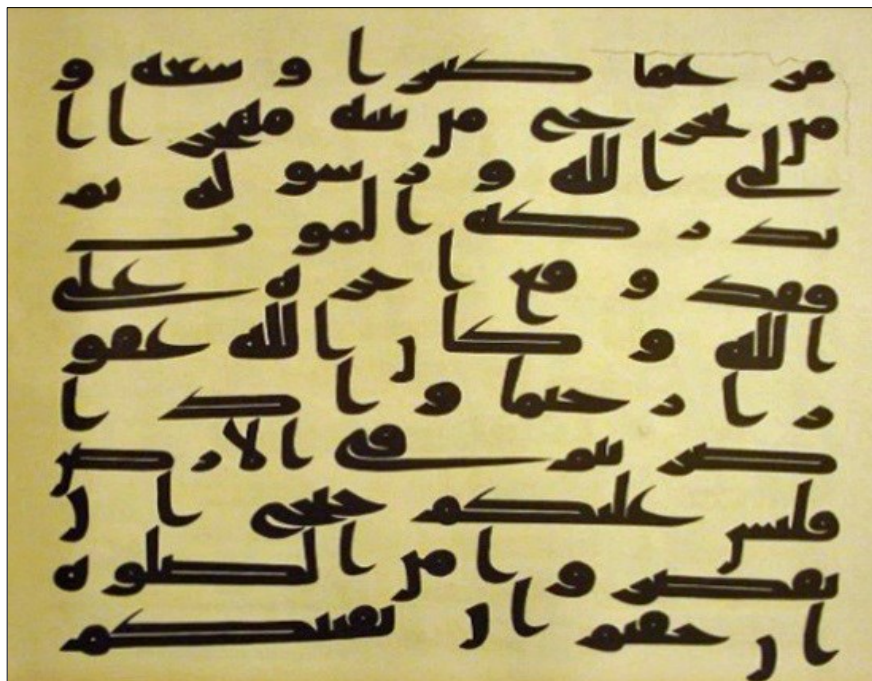 مرغما كثيرا وسعة و
من يخرج من بيته مهجرا ا
لى الله ورسوله ثم
يدركه الموت
فقد وقع اجره على
الله وكان الله غفو
را رحيما واذا
ضربتم في الارض
فليس عليكم جنح ان
تقصروا من الصلوة
ان خفتم ان يفتنكم